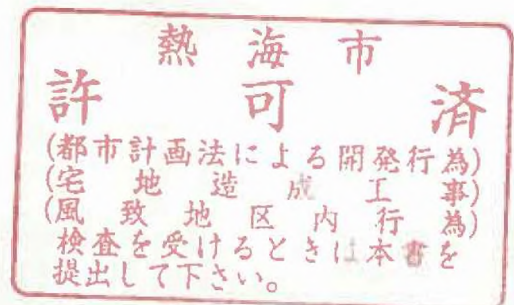 熱海市
許可済
(都市計画法による開発行為)
(宅地造成工事)
(風致地区内行為)
検査を受けるときは本書を
提出して下さい。